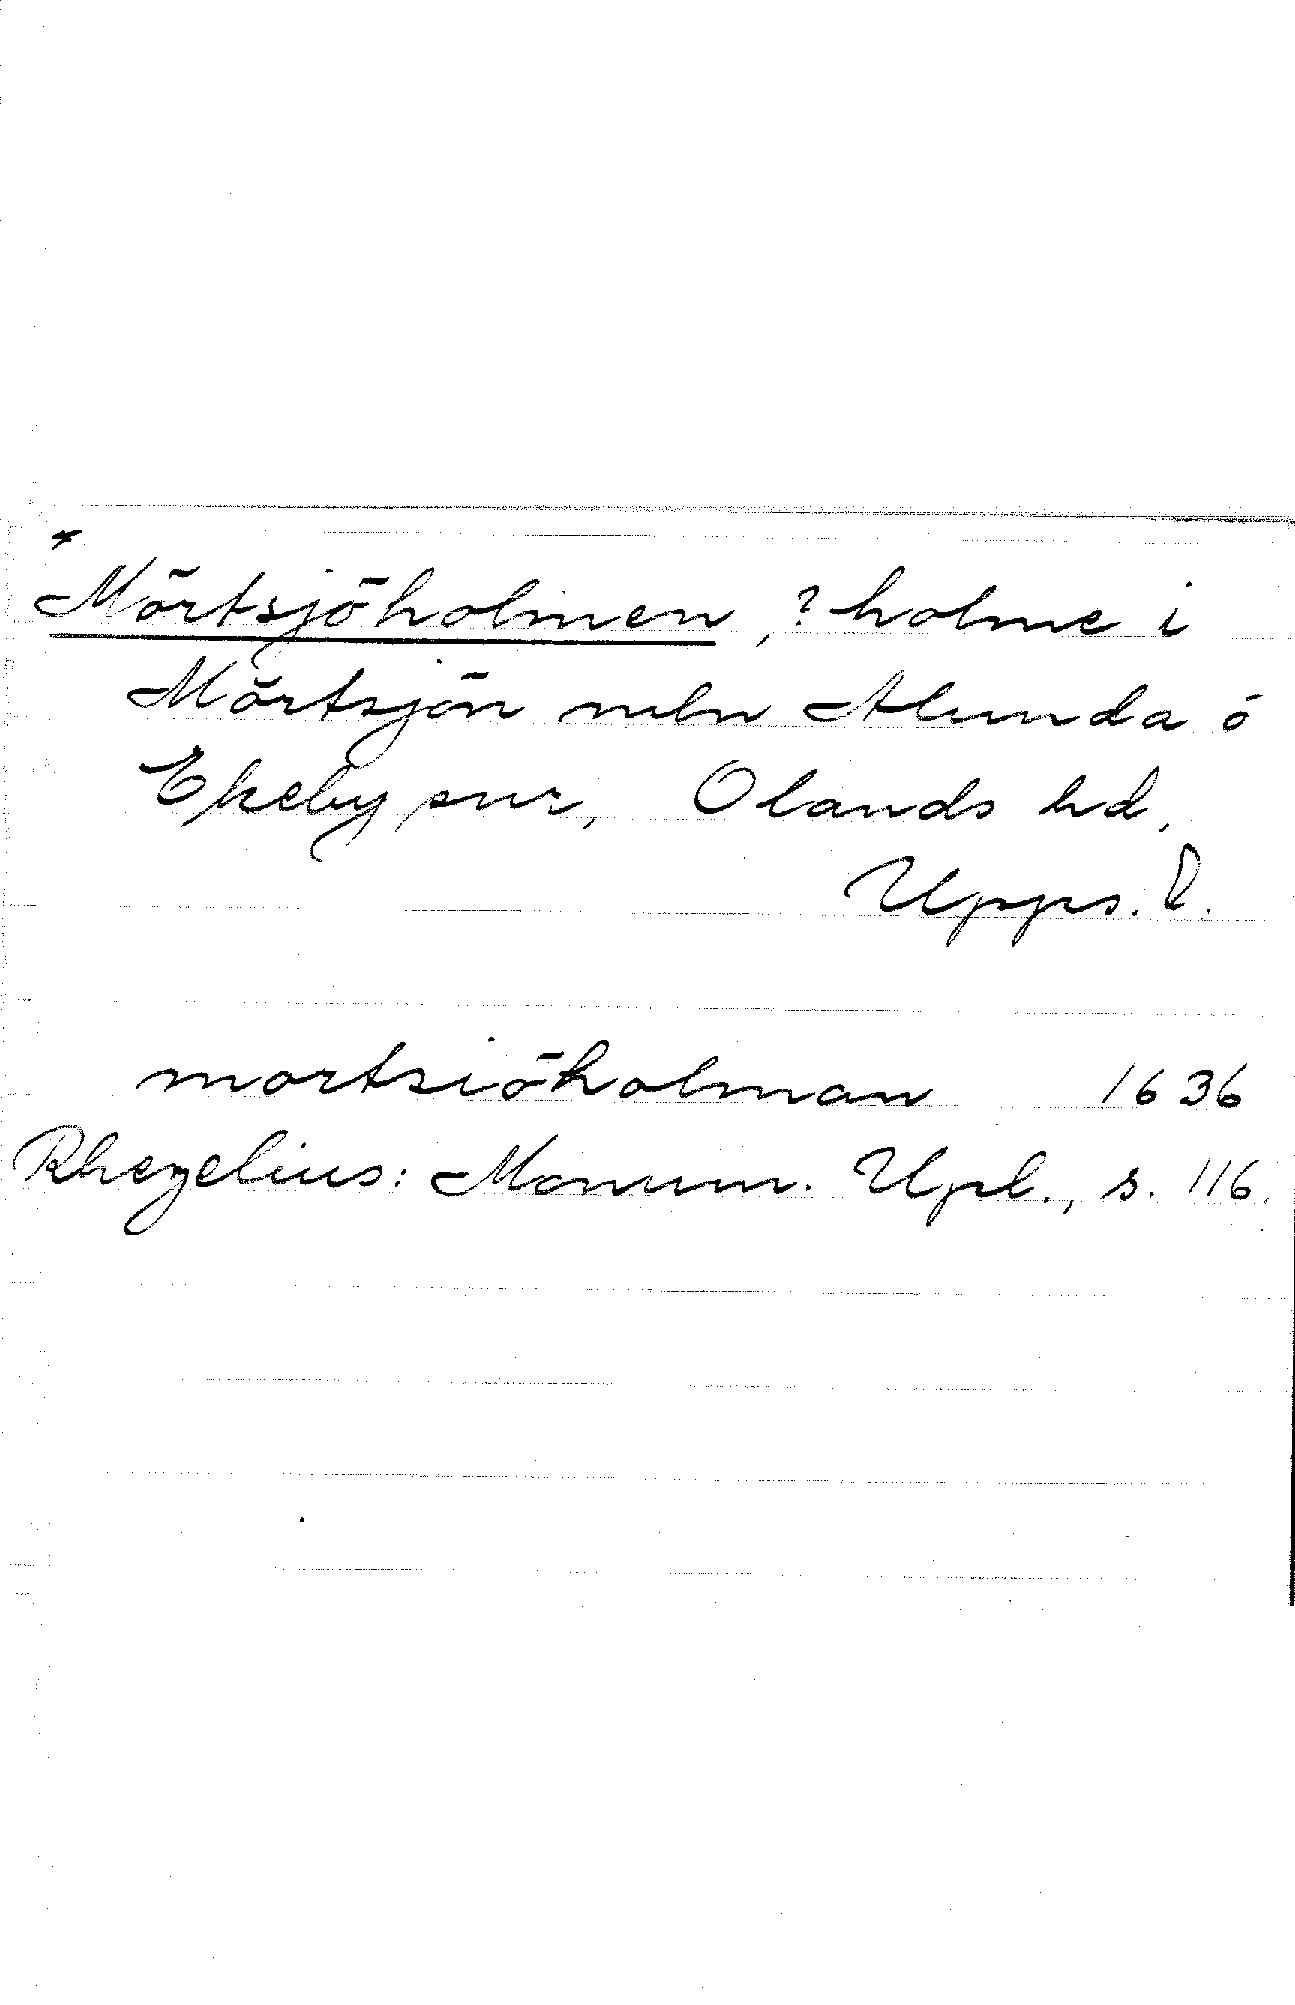 *
Mörtsjöholmen, ? holme i
Mörtsjön mln Alunda o
Ekeby snr, Olands hd,
Upps. l.
mortsiöholman 1636
Rhezelius: Monum. Upl., s. 116.